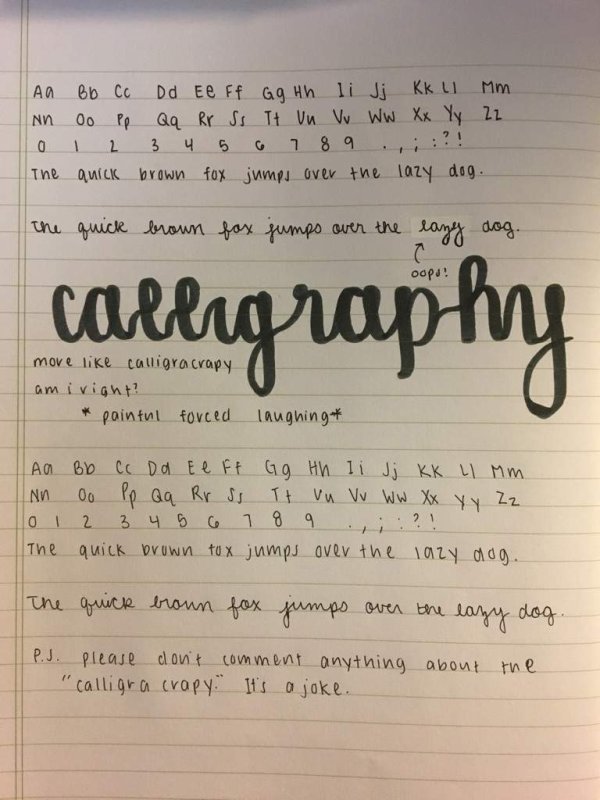 Aa Bb Cc Dd Ee Ff Gg Hh Ii Jj Kk Ll Mm
Nn Oo Pp Qq Rr Ss Tt Uu Vv Ww Xx Yy Zz
0 1 2 3 4 5 6 7 8 9 . , ; : ? !
The quick brown fox jumps over the lazy dog.
The quick brown fox jumps over the lazy dog.
oops!
calligraphy
more like calligracrapy
am i right?
* painful forced laughing*
Aa Bb Cc Dd Ee Ff Gg Hh Ii Jj Kk Ll Mm
Nn Oo Pp Qq Rr Ss Tt Uu Vv Ww Xx Yy Zz
0 1 2 3 4 5 6 7 8 9 . , ; : ? !
The quick brown fox jumps over the lazy dog.
The quick brown fox jumps over the lazy dog.
P.S. please don't comment anything about the
"calligra crapy." It's a joke.